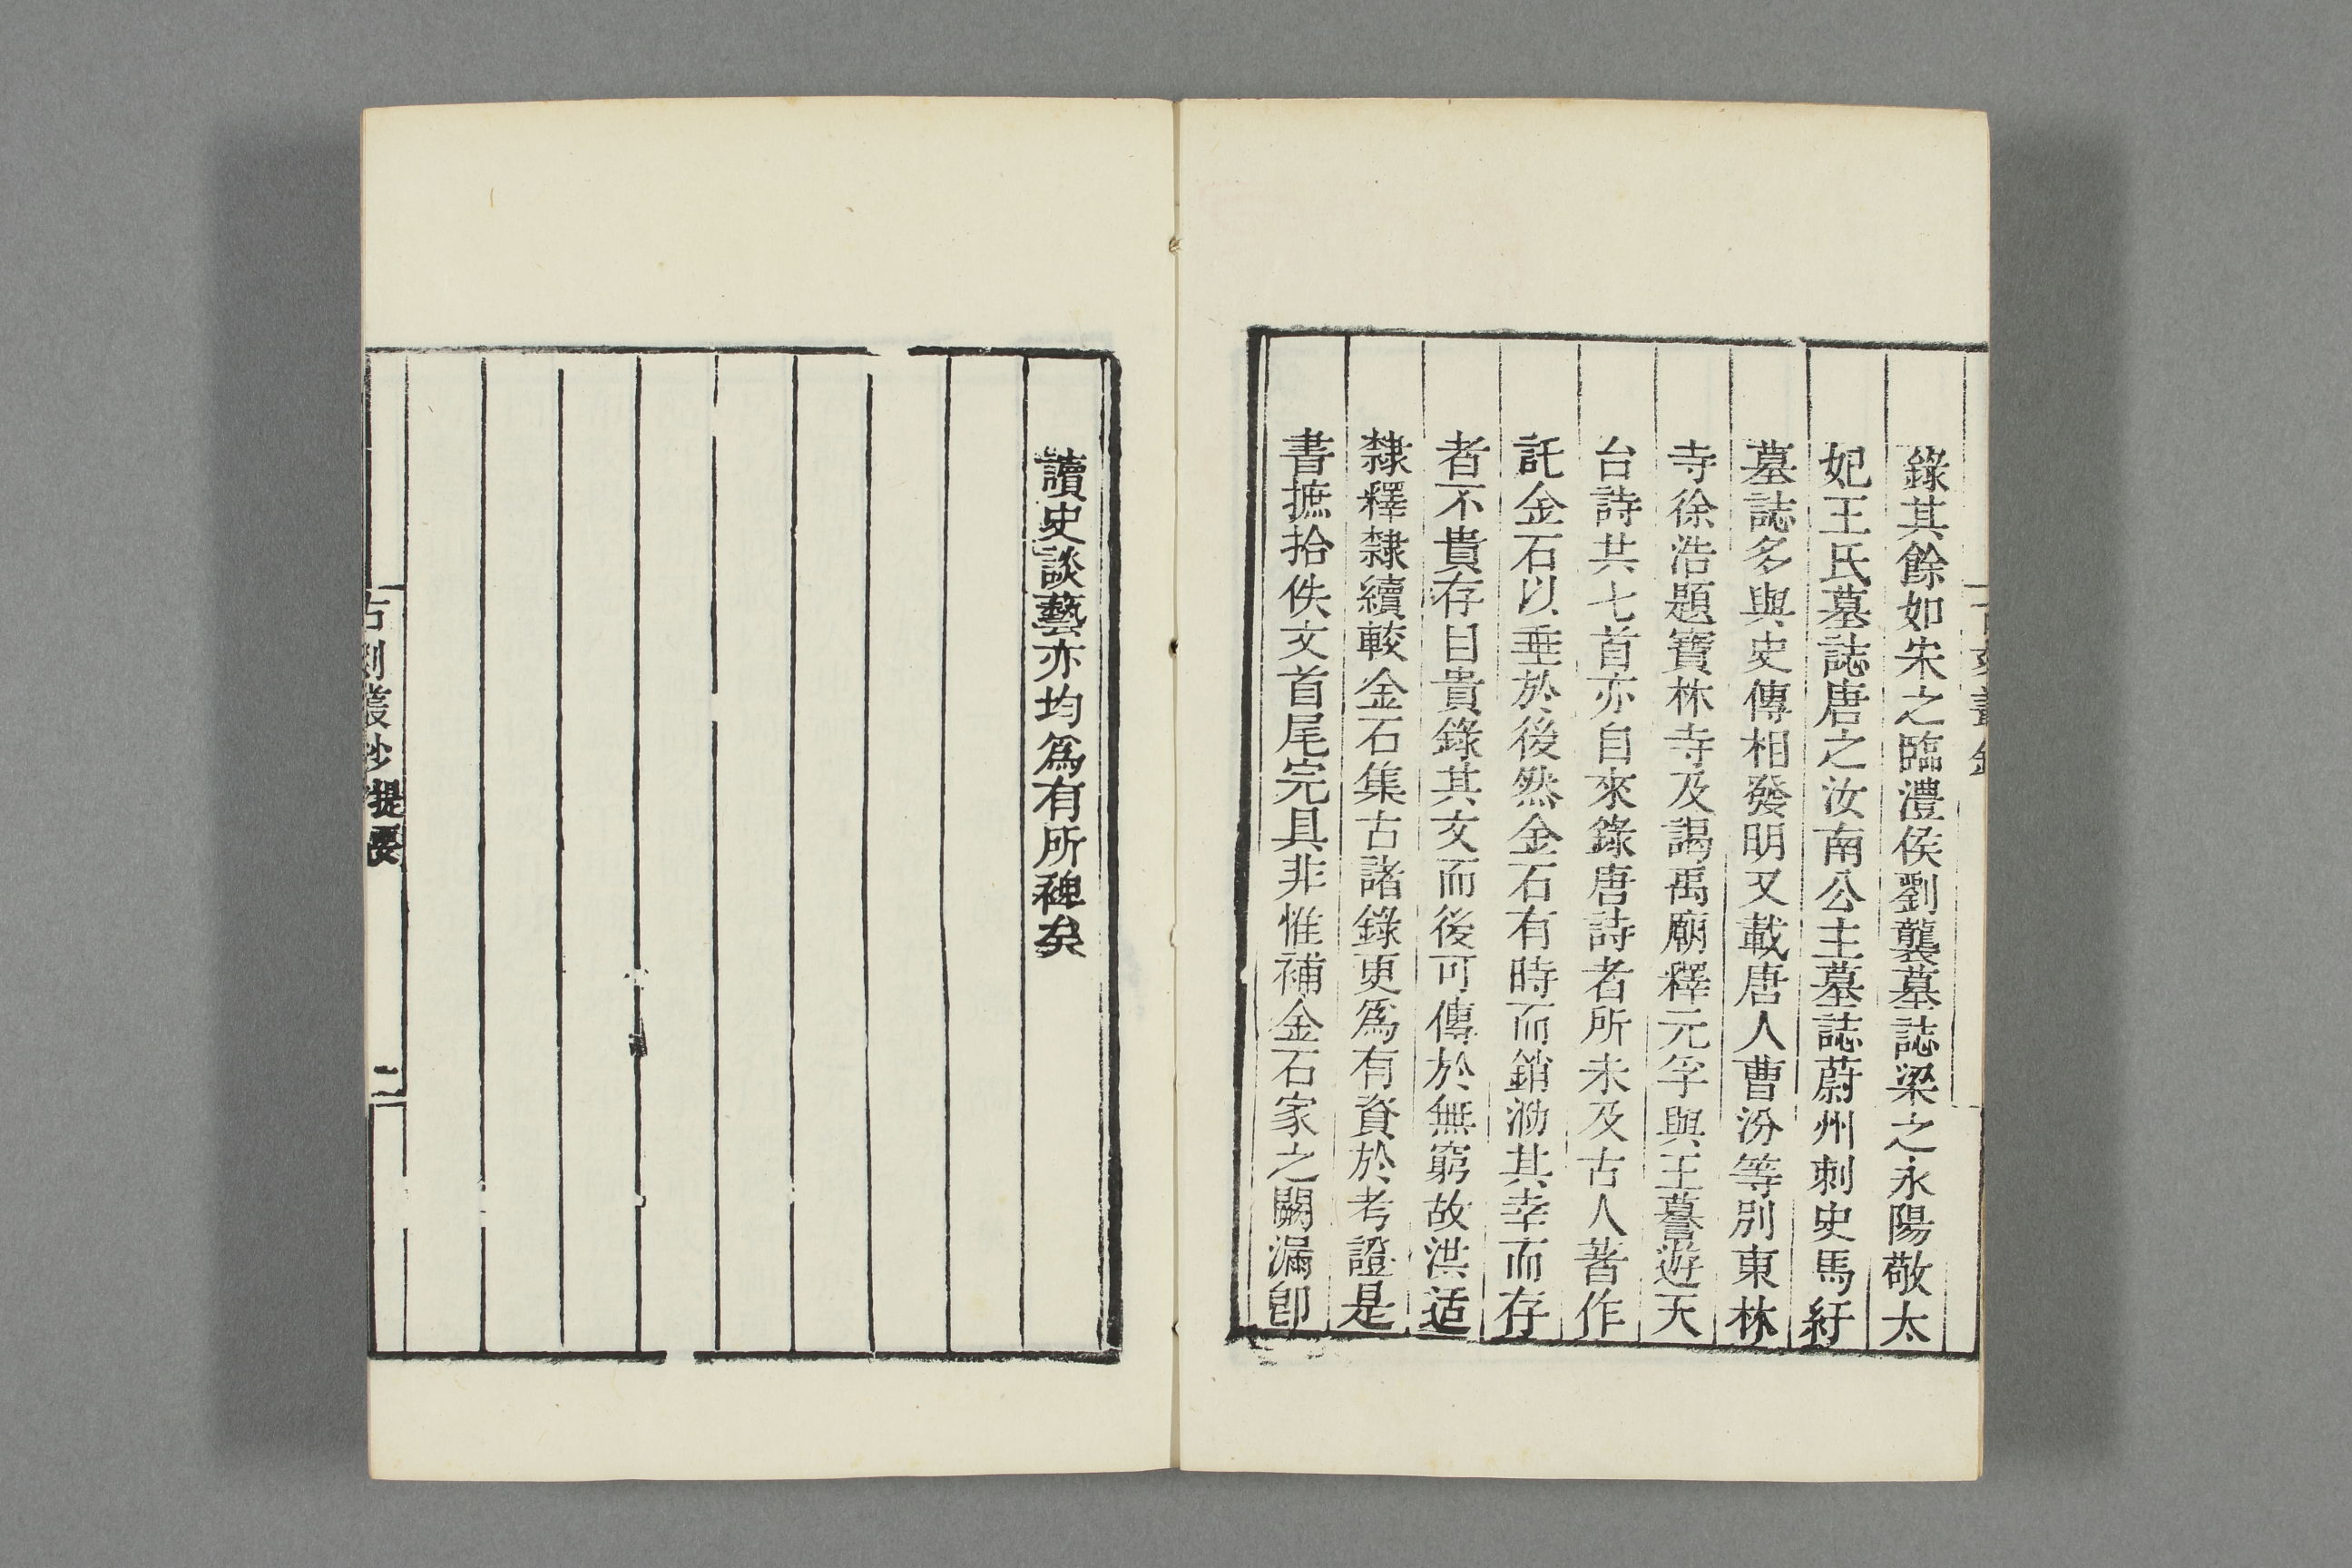 錄其餘如宋之臨澧侯劉襲墓誌梁之永陽敬太
妃王氏墓誌唐之汝南公主墓誌蔚州刺史馬紓
墓誌多與史傳相發明又載唐人曹汾等別東林
寺徐浩題寶林寺及謁禹廟釋元孚與王蕃遊天
台詩共七首亦自來錄唐詩者所未及古人著作
託金石以垂於後然金石有時而銷泐其幸而存
者不貴存目貴錄其文而後可傳於無窮故洪适
隸釋隸續較金石集古諸錄更爲有資於考證是
書摭拾佚文首尾完具非惟補金石家之闕漏卽
讀史談藝亦均爲有所裨矣
古刻叢抄提要
二